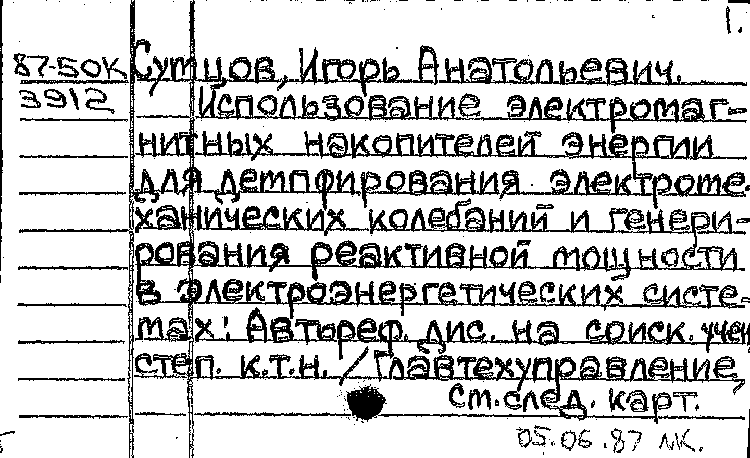 1.
87-50К Сутцов, Игорь Анатольевич.
3912 Использование электромаг-
нитных накопителей энергии
для демпфирования электроме-
ханических колебаний и генери-
рования реактивной мощности
в электроэнергетических систе-
мах: Автореф. дис. на соиск. учен
степ. к.т.н. / Главтехуправление,
См. след. карт.
05.06.87